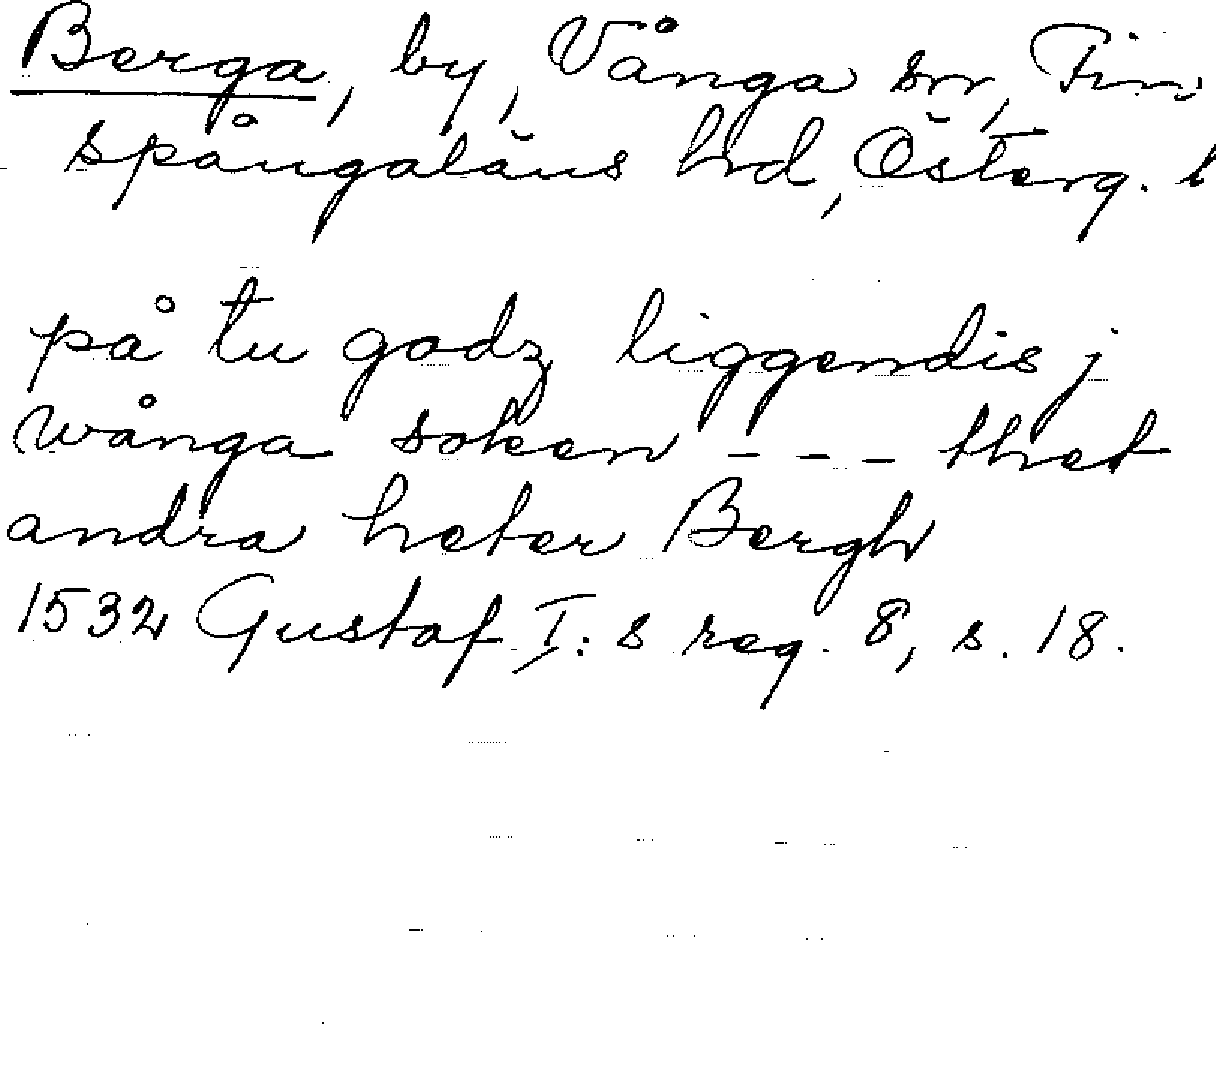 Berga, by, Vånga sn, Fin
spångaläns hd, Österg. l
på tu godz liggendis j
wånga soken - - - thet
andra heter Bergh
1532 Gustaf I:s reg. 8, s. 18.